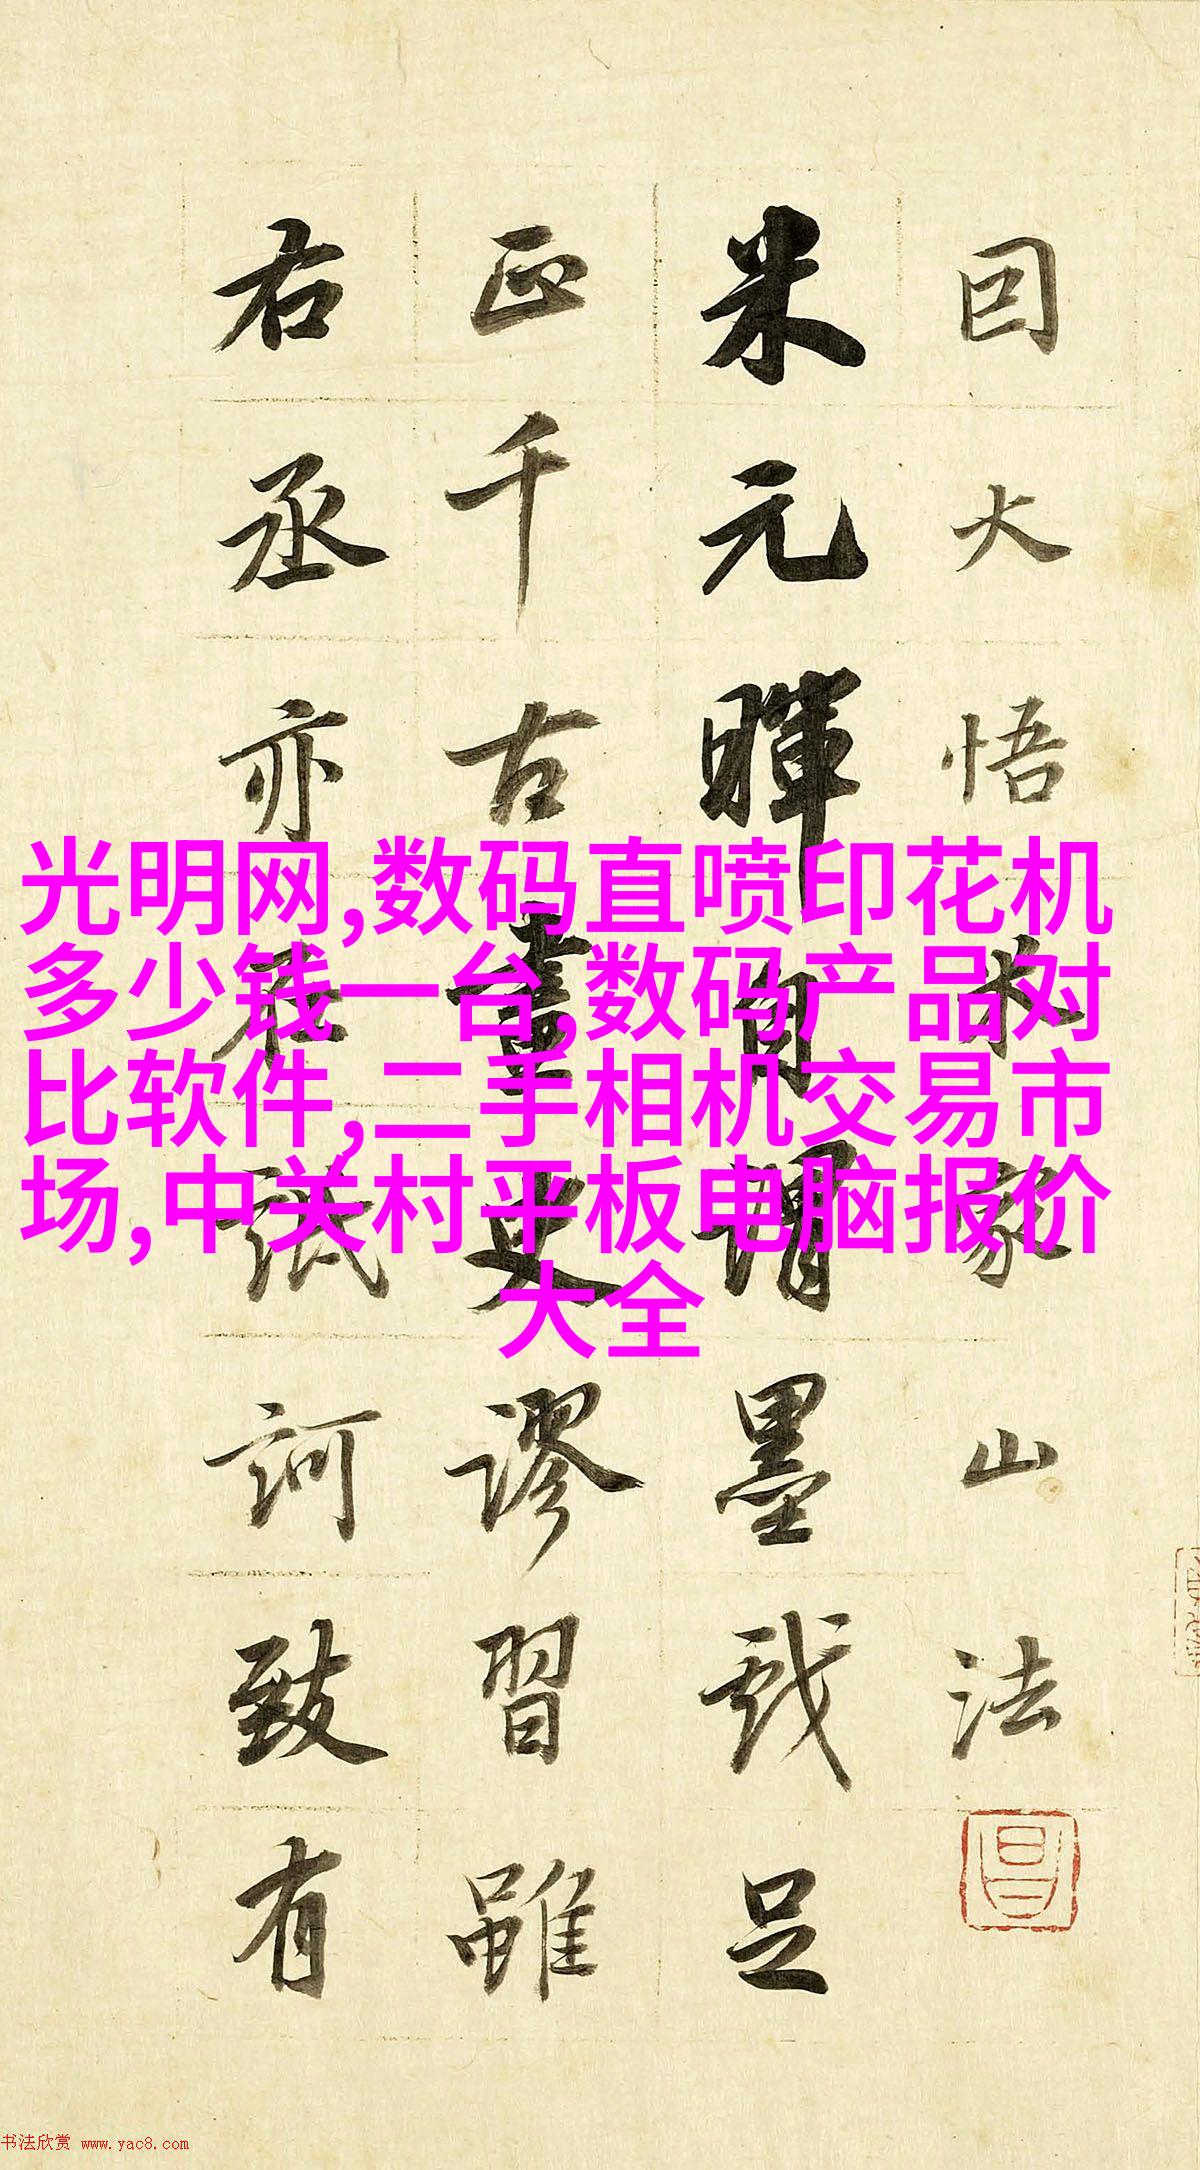 囙大悟米家山法
米元暉自謂墨戲足
正千古畫史謬習雖
右丞亦在詆訶致有
光明网,数码直喷印花机
多少钱一台,数码产品对
比软件,二手相机交易市
场,中关村平板电脑报价
大全
书法欣赏 www.yac8.com